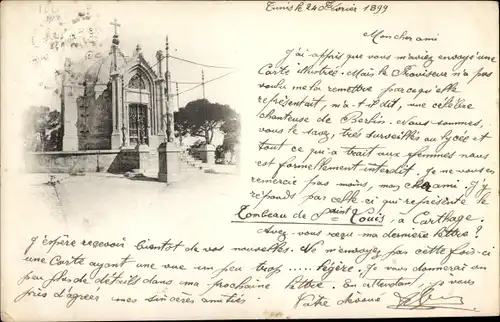 Tunis le 24 Février 1899
Mon cher ami
J'ai appris que vous m'aviez envoyé une
Carte illustrée. Mais le Proviseur n'a pas
voulu me la remettre parcequ'elle
représentait, m'a-t-il dit, une célèbre
chanteuse de Berlin. Nous sommes,
vous le savez, très surveillés au lycée et
tout ce qui a trait aux femmes nous
est formellement interdit. Je ne vous en
remercie pas moins, mon cher ami! Je
réponds par celle qui représente le
Tombeau de Saint Louis, à Carthage.
Avez-vous reçu ma dernière lettre?
J'espère recevoir bientôt de vos nouvelles. Ne m'envoyez pas cette fois-ci
une Carte ayant une vue un peu trop ..... légère. Je vous donnerai un
peu plus de détails dans ma prochaine lettre. En attendant, je vous
prie d'agréer mes sincères amitiés.
Votre dévoué